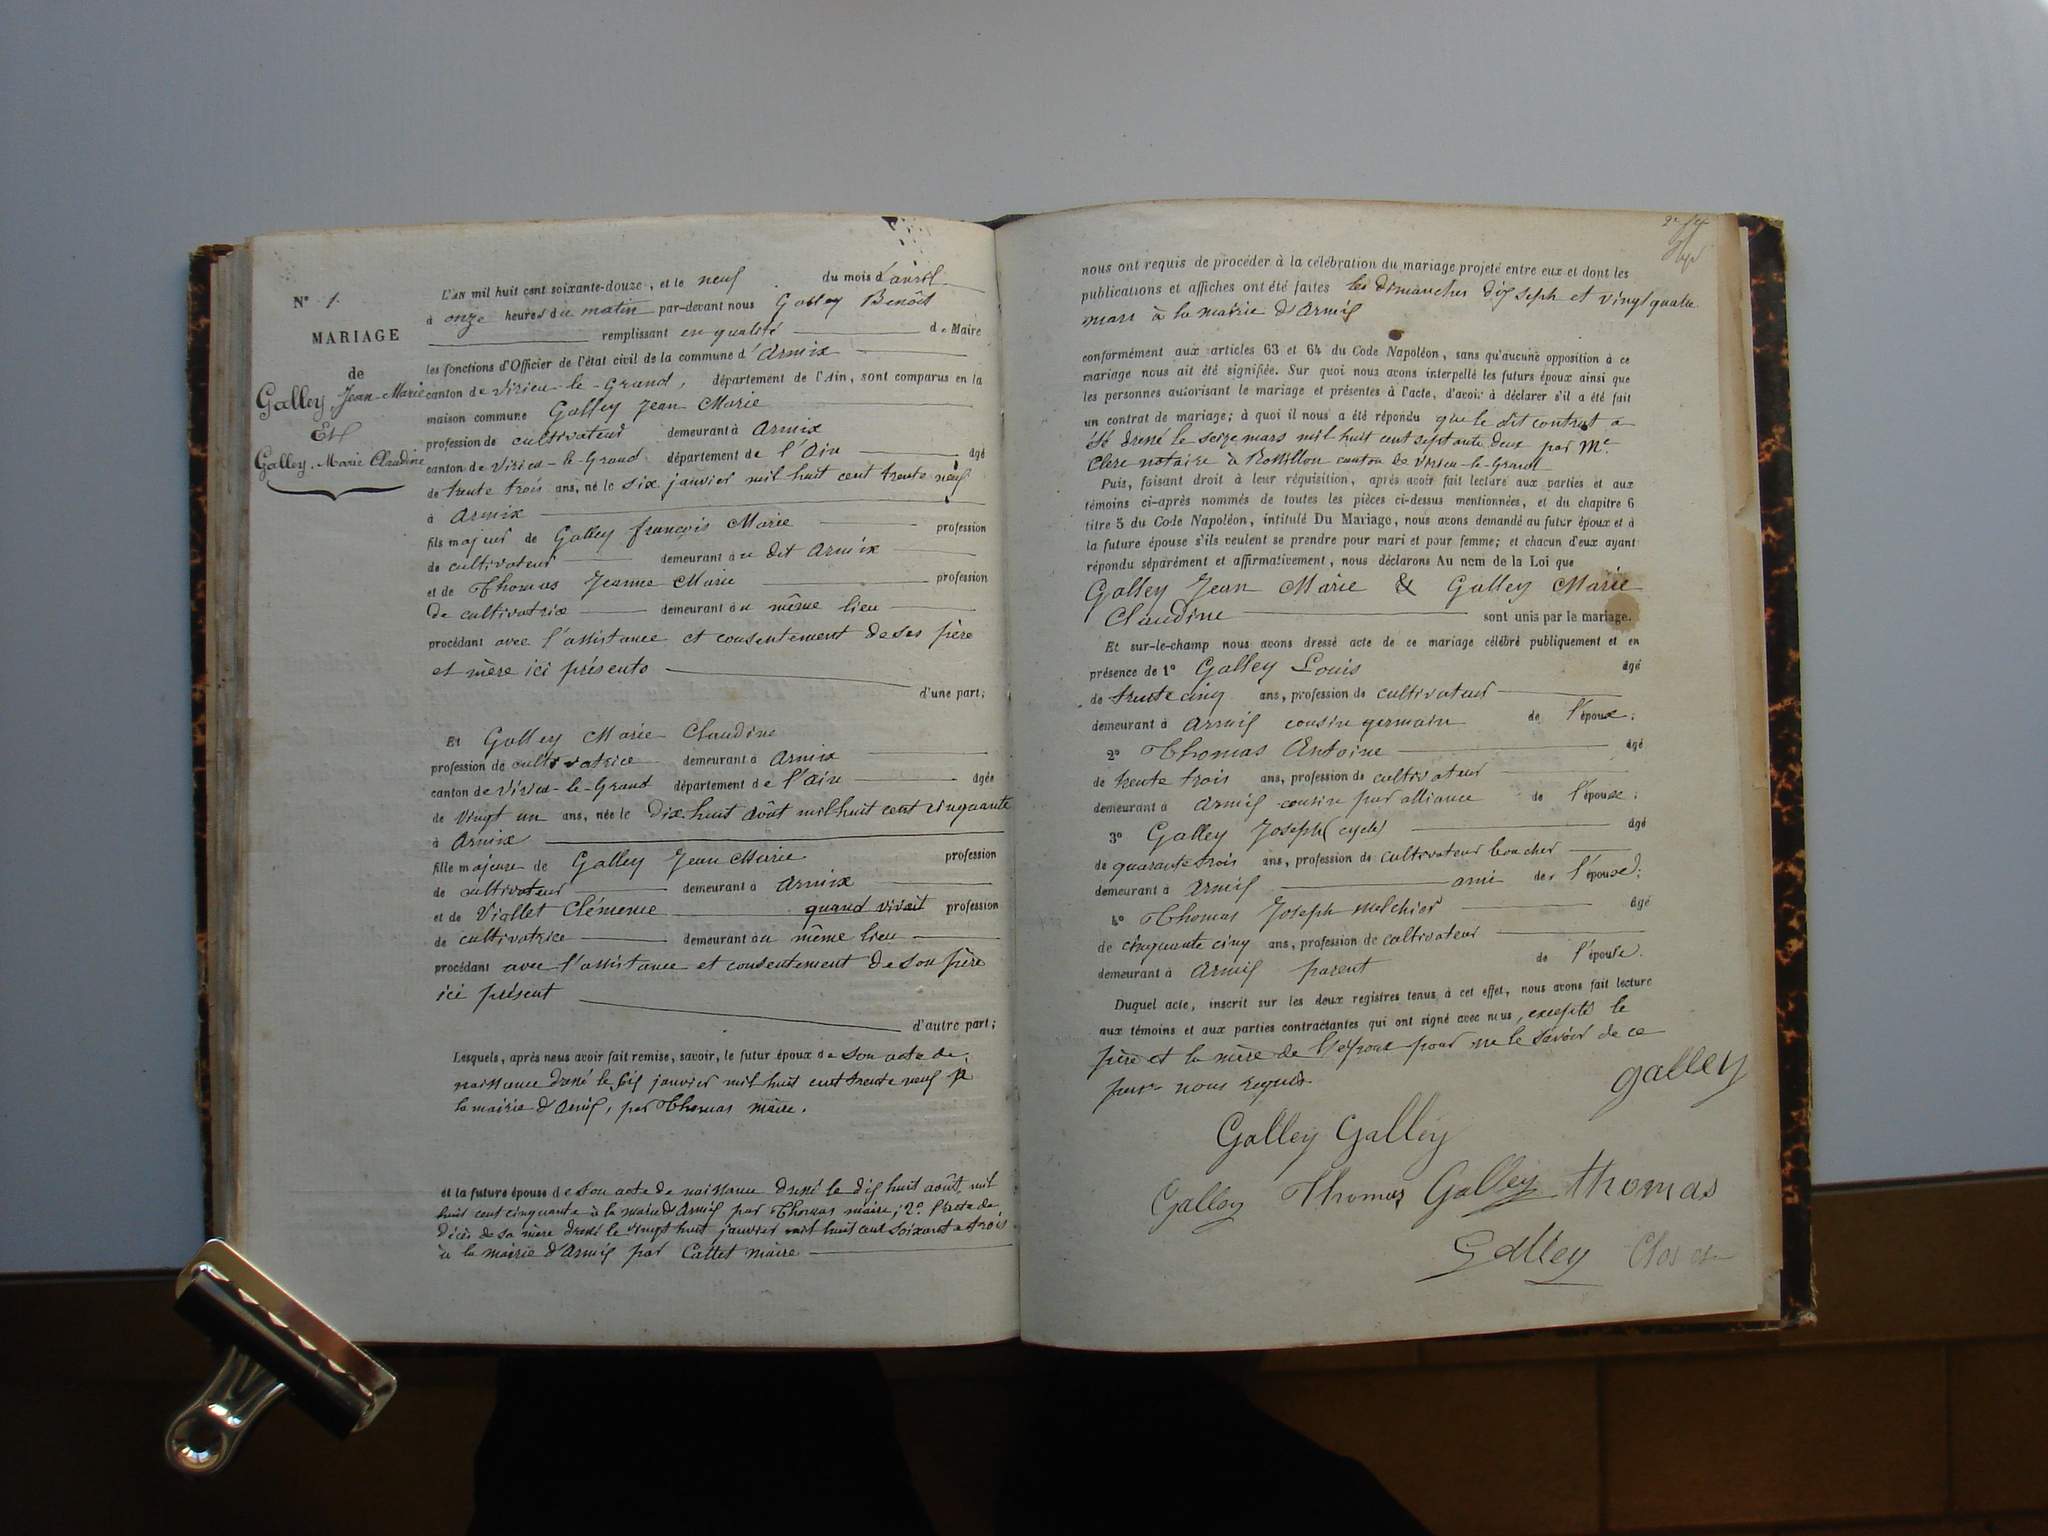 N° 1.
MARIAGE
de
Galley, Jean-Marie
Et
Galley, Marie Claudine
L'AN mil huit cent soixante-douze, et le neuf du mois d'avril
à onze heures du matin par-devant nous Galley Benoît
remplissant en qualité de Maire
les fonctions d'Officier de l'état civil de la commune d'Armix
canton de Virieu-le-Grand, département de l'Ain, sont comparus en la
maison commune Galley Jean Marie
profession de cultivateur demeurant à Armix
canton de Virieu-le-Grand département de l'Ain âgé
de trente trois ans, né le six janvier mil huit cent trente neuf
à Armix
fils majeur de Galley françois Marie profession
de cultivateur demeurant au dit Armix
et de Thomas Jeanne Marie profession
de cultivatrice demeurant au même lieu
procédant avec l'assistance et consentement de ses père
et mère ici présents
d'une part;
Et Galley Marie Claudine
profession de cultivatrice demeurant à Armix
canton de Virieu-le-Grand département de l'Ain âgée
de vingt un ans, née le dix huit août mil huit cent cinquante
à Armix
fille majeure de Galley Jean Marie profession
de cultivateur demeurant à Armix
et de Viollet Clémence quand vivait profession
de cultivatrice demeurant au même lieu
procédant avec l'assistance et consentement de son père
ici présent
d'autre part;
Lesquels, après nous avoir fait remise, savoir, le futur époux de son acte de
naissance dressé le six janvier mil huit cent trente neuf à
la mairie d'Armix, par Thomas maire.
et la future épouse de son acte de naissance dressé le dix huit août mil
huit cent cinquante à la mairie d'Armix par Thomas maire; 2° l'acte de
décès de sa mère dressé le vingt huit janvier mil huit cent soixante trois
à la mairie d'Armix par Cattet maire
nous ont requis de procéder à la célébration du mariage projeté entre eux et dont les
publications et affiches ont été faites les dimanches dix sept et vingt quatre
mars à la mairie d'Armix
conformément aux articles 63 et 64 du Code Napoléon, sans qu'aucune opposition à ce
mariage nous ait été signifiée. Sur quoi nous avons interpellé les futurs époux ainsi que
les personnes autorisant le mariage et présentes à l'acte, d'avoir à déclarer s'il a été fait
un contrat de mariage; à quoi il nous a été répondu que le dit contrat a
été dressé le seize mars mil huit cent septante deux par Me
Clerc notaire à Rossillon canton de Virieu-le-Grand
Puis, faisant droit à leur réquisition, après avoir fait lecture aux parties et aux
témoins ci-après nommés de toutes les pièces ci-dessus mentionnées, et du chapitre 6
titre 5 du Code Napoléon, intitulé Du Mariage, nous avons demandé au futur époux et à
la future épouse s'ils veulent se prendre pour mari et pour femme; et chacun d'eux ayant
répondu séparément et affirmativement, nous déclarons Au nom de la Loi que
Galley Jean Marie & Galley Marie
Claudine sont unis par le mariage.
Et sur-le-champ nous avons dressé acte de ce mariage célébré publiquement et en
présence de 1° Galley Louis âgé
de trente cinq ans, profession de cultivateur
demeurant à Armix cousin germain de l'époux;
2° Thomas Antoine âgé
de trente trois ans, profession de cultivateur
demeurant à Armix cousin par alliance de l'époux;
3° Galley Joseph (cycle) âgé
de quarante trois ans, profession de cultivateur boucher
demeurant à Armix ami de l'épouse;
4° Thomas Joseph Melchior âgé
de cinquante cinq ans, profession de cultivateur
demeurant à Armix parent de l'épouse.
Duquel acte, inscrit sur les deux registres tenus à cet effet, nous avons fait lecture
aux témoins et aux parties contractantes qui ont signé avec nous, excepté le
père et la mère de l'époux pour ne le savoir de ce
par nous requis.
galley
Galley Galley
Galley Thomas Galley Thomas
Galley